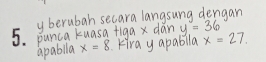 5. y berubah secara langsung dengan
punca kuasa tiga x dan y = 36
apabila x = 8. Kira y apabila x = 27.